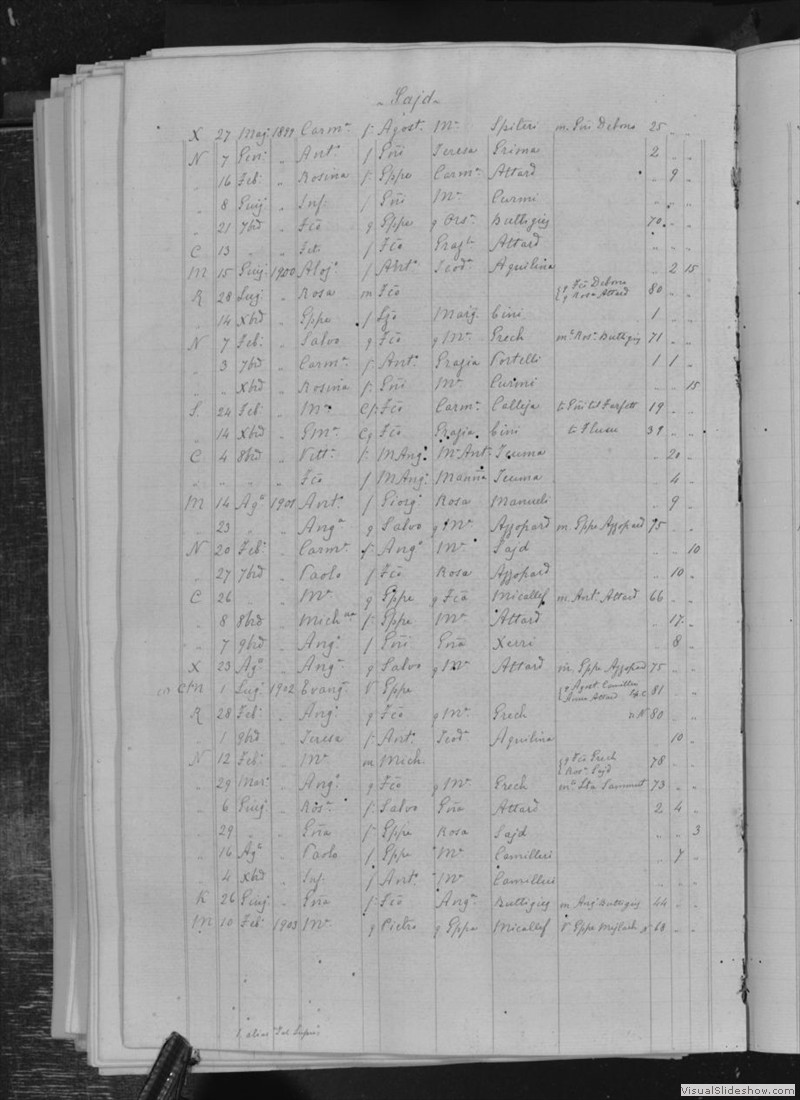 Sajd
X 27 Mag. 1899 Carm.a f. Agost. M.a Spiteri m. Gio Debono 25 " "
N 7 Gen. " Ant.o f Gio Teresa Grima 2 " "
" 16 Feb. " Rosina f. Gppe Carm.a Attard " 9 "
" 8 Giug. " Inf. f Gio M.a Curmi " " "
" 21 7bre " Fco q Gppe q Ors.a Buttigieg 70 " "
C 13 " " f Fco Attard " " "
M 15 Giug. 1900 Aloj.a f Ant.o Teod.a Aquilina " 2 15
R 28 Lug. " Rosa m Fco q Fco Debono 80 " "
q Rosa Attard
" 14 Xbre " Gppe f Marg. Cini 1 " "
N 7 Feb. " Salvo q Fco q M.a Grech m.o Ros.a Buttigieg 71 " "
" 3 7bre " Carm.a f. Ant.o Grazia Portelli 1 1 "
" " Xbre " Rosina f. Gio M.a Curmi " " 15
S. 24 Feb. " M.a Cf. Fco Carm.a Calleja 19 " "
" 14 Xbre " Cq Fco Grazia Cini 39 " "
C 4 8bre " Vitt.a f. M Ang.o M.a Ant.a Tcuma " 20 "
" " " " Fco f M Ang.o Tcuma " 4 "
M 14 Ag.o 1901 Ant.o f Giorg.o Rosa Manueli " 9 "
" 23 " " Ang.a q Salvo q M.a Azzopard m. Gppe Azzopard 75 " "
N 20 Feb. " Carm.a f. Ang.o M.a Sajd " " 10
" 27 7bre " Paolo f Fco Rosa Azzopard " 10 "
C 26 " " M.a q Gppe q Fca Micallef m. Ant.o Attard 66 " "
" 8 8bre " Mich.le f. Gppe M.a Attard " 17 "
" 7 9bre " Ang.o f Gio Gioa Xerri " 8 "
X 23 Ag.o " Ang.a q Salvo q M.a Attard Gppe Azzopard 75 " "
1 Lug. 1902 Evang. V Gppe q Agost. Camilleri 81 " "
Anna Attard
R 28 Feb. " Ang.o q Fco q M.a Grech 80 " "
" 1 9bre " Teresa f. Ant.o Teod.a Aquilina " 10 "
N 12 Feb. " M.a m Mich. q Fco Grech 78 " "
Ros.a Sajd
" 29 Mar. " Ang.o q Fco q M.a Grech Sammut 73 " "
" 6 Giug. " Ros.a f. Salvo Gioa Attard 2 4 "
" 29 " " Gioa f Gppe Rosa Sajd " " 3
" 16 Ag.o " Paolo f. Gppe M.a Camilleri " 7 "
" 4 Xbre " Inf. f Ant.o M.a Camilleri " " "
K 26 Giug. " Gioa f. Fco Ang.a Buttigieg m Ang. Buttigieg 44 " "
M 10 Feb. 1903 M.a q Pietro q Gppa Micallef V Gppe 68 " "
alias
VisualSlideshow.com